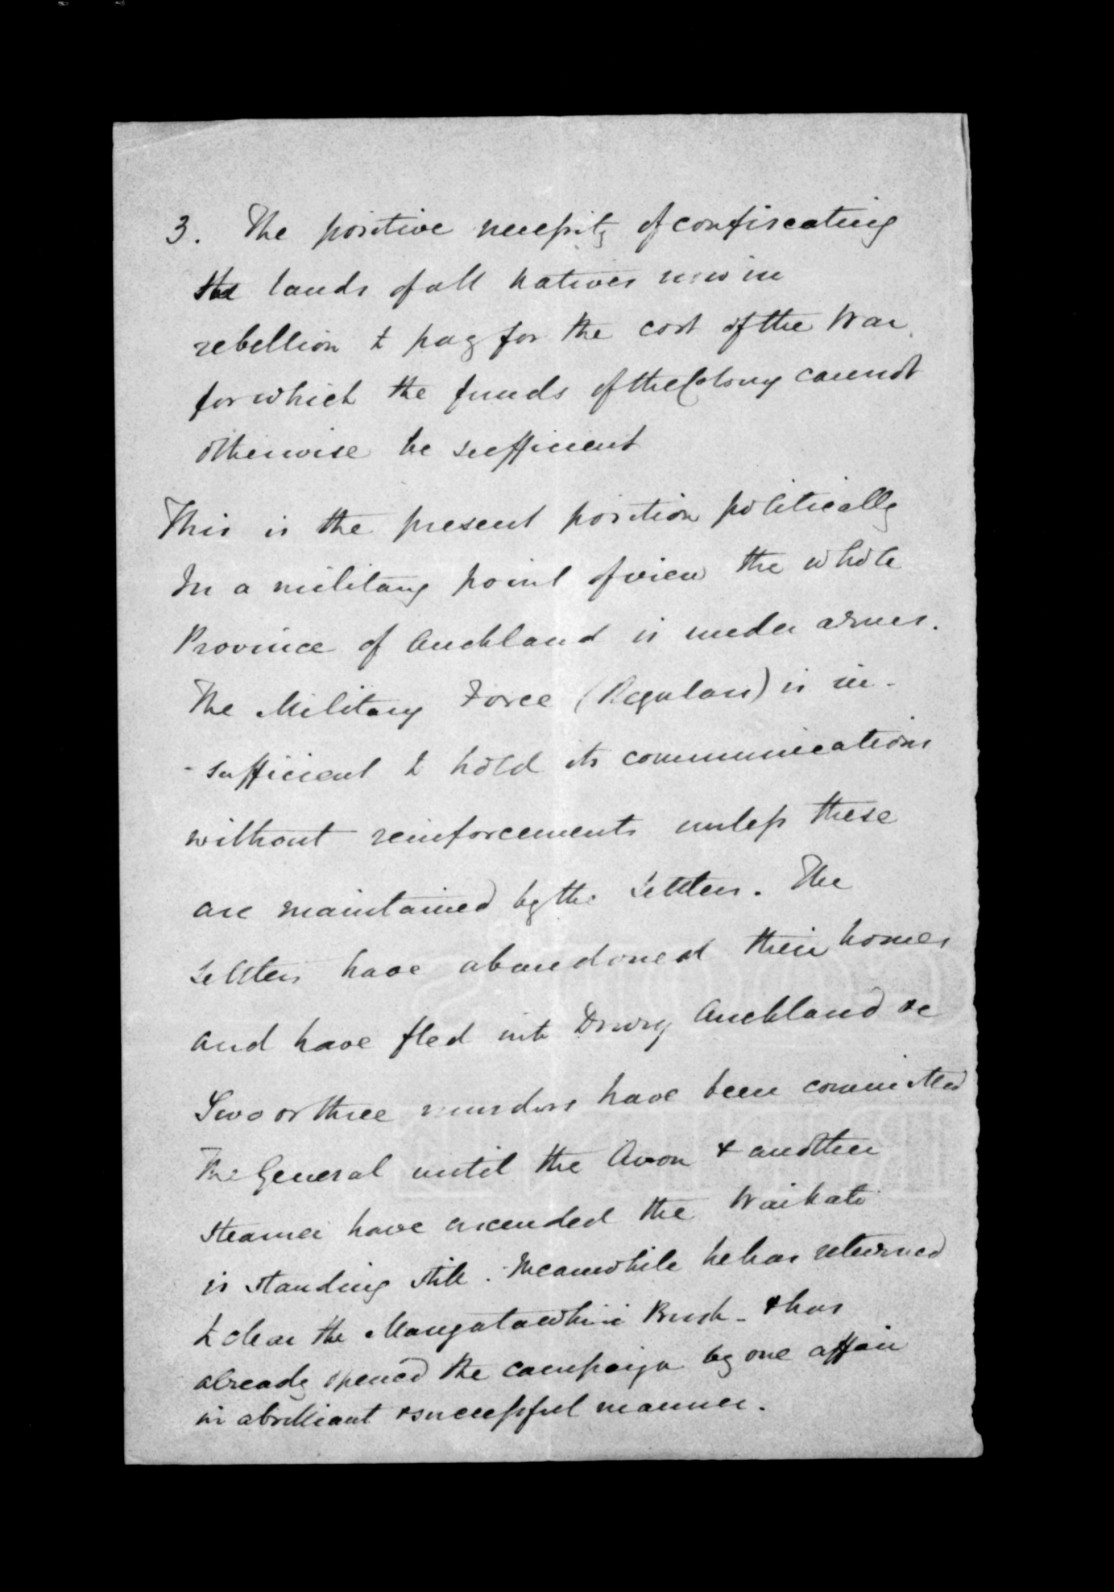 3. The positive necessity of confiscating
the lands of all natives now in
rebellion to pay for the cost of the War
for which the funds of the Colony cannot
otherwise be sufficient
This is the present position politically
In a military point of view the whole
Province of Auckland is under arms.
The Military Force (Regulars) is in-
-sufficient to hold its communications
without reinforcements unless these
are maintained by the Settlers. The
Settlers have abandoned their homes
and have fled into Drury Auckland &c
Two or three murders have been committed
The General until the Avon & another
steamer have ascended the Waikato
is standing still. Meanwhile he has returned
to clear the Mangatawhiri Bush - & has
already opened the campaign by one affair
in a brilliant & successful manner.